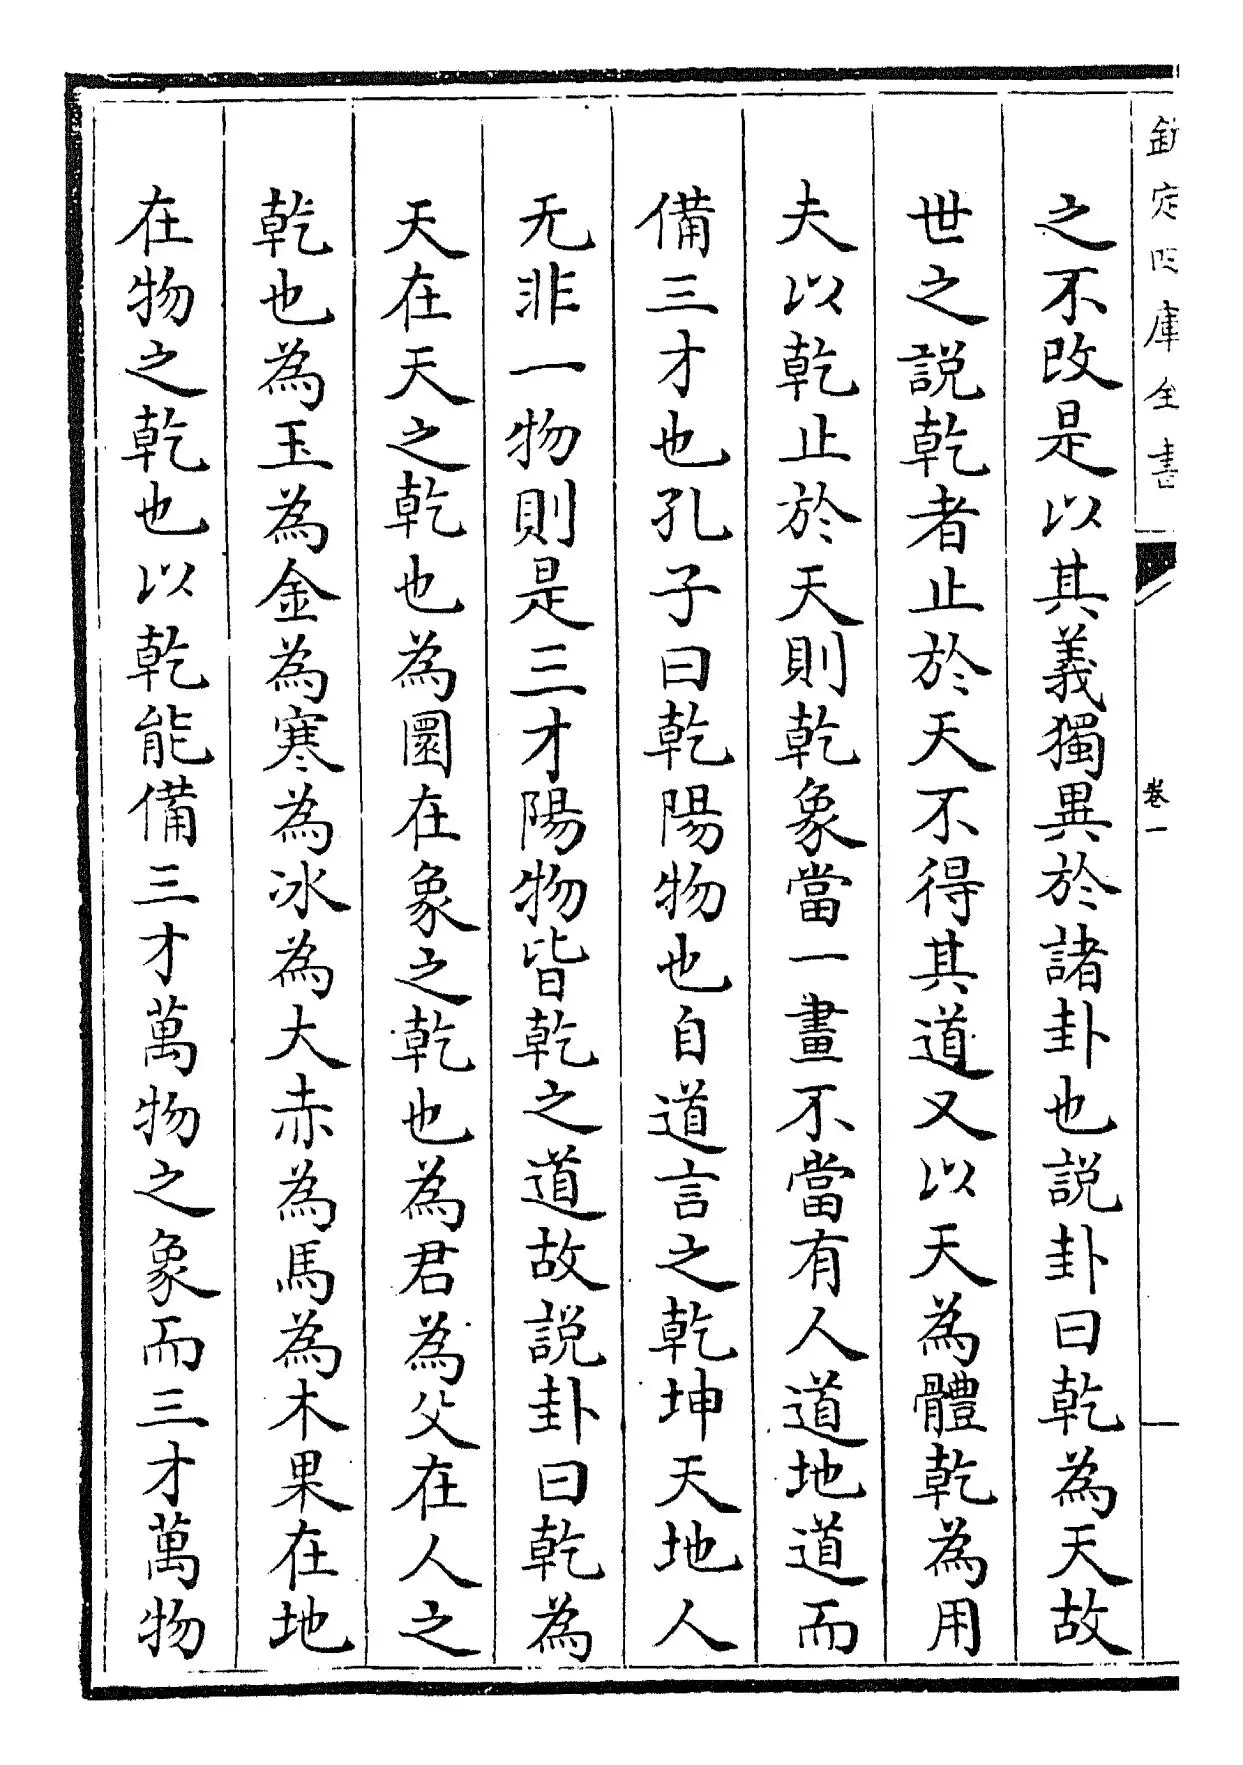 欽定四庫全書
卷一
之不改是以其義獨異於諸卦也說卦曰乾為天故
世之說乾者止於天不得其道又以天為體乾為用
夫以乾止於天則乾象當一畫不當有人道地道而
備三才也孔子曰乾陽物也自道言之乾坤天地人
无非一物則是三才陽物皆乾之道故說卦曰乾為
天在天之乾也為圜在象之乾也為君為父在人之
乾也為玉為金為寒為冰為大赤為馬為木果在地
在物之乾也以乾能備三才萬物之象而三才萬物